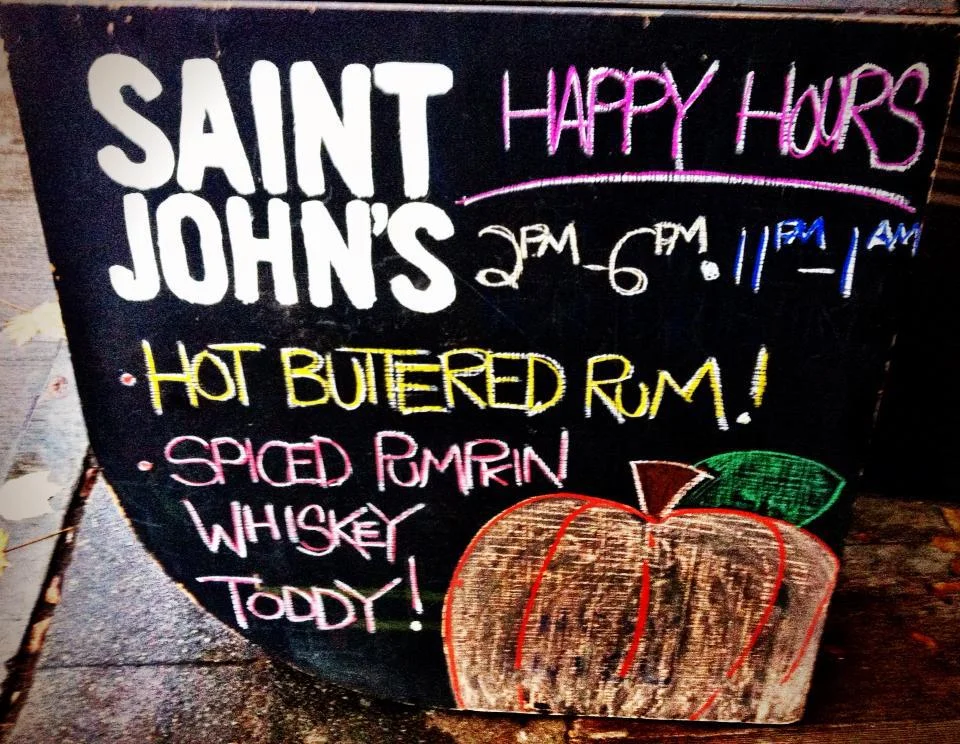 SAINT
JOHN'S
HAPPY HOURS
2PM-6PM. 11PM-1AM
• HOT BUTTERED RUM!
• SPICED PUMPKIN
WHISKEY
TODDY!